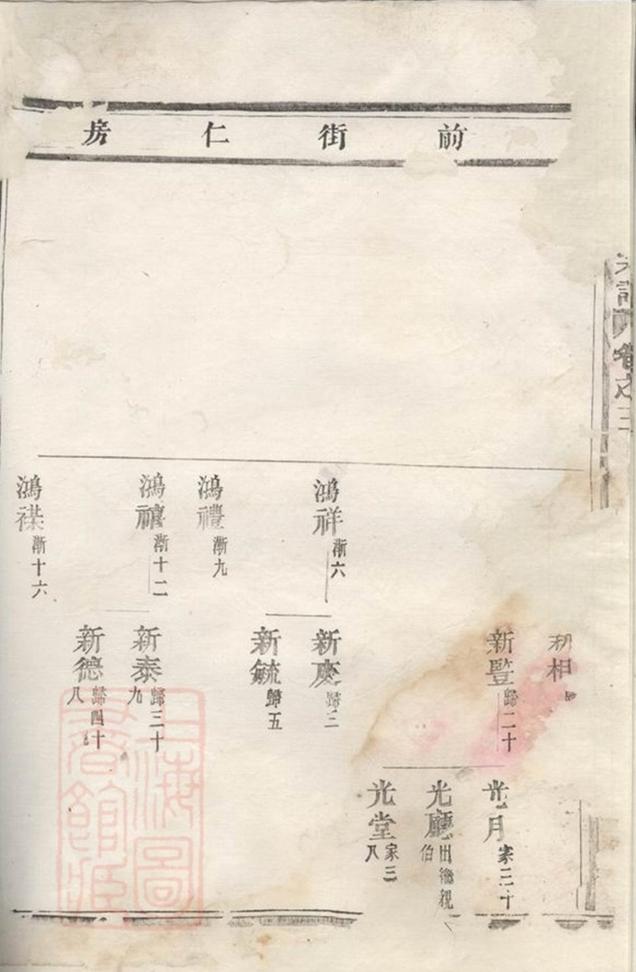 前街仁房
卷之三
相
新 二十
光月 家三十
光廳 出繼親伯
光堂 家三八
鴻祥 漸六
新慶 歸三
新毓 歸五
鴻禮 漸九
鴻禧 漸十二
新泰 歸三十九
新德 歸四十八
鴻禖 漸十六
上海圖書館藏